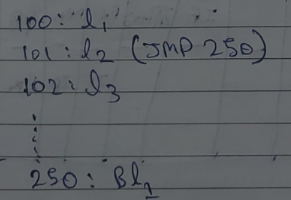 100: I₁
101: I₂ (JMP 250)
102: I₃
⋮
250: BI₁